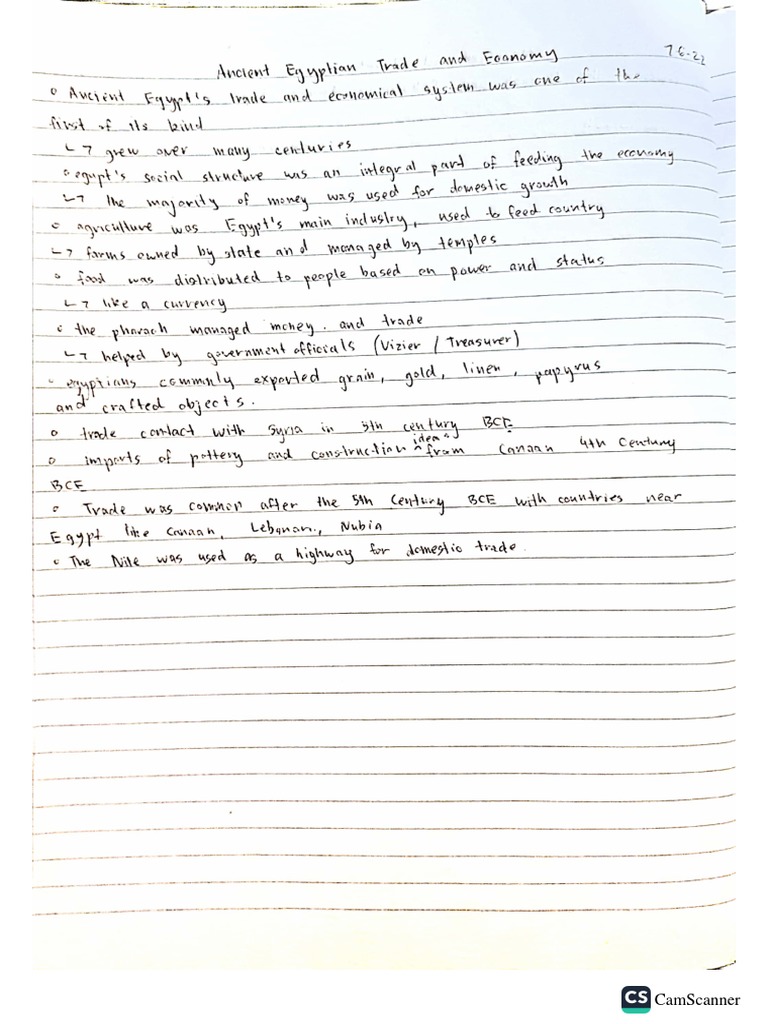 Ancient Egyptian Trade and Economy 7-6-22
° Ancient Egypt's trade and economical system was one of the
first of its kind
↳ grew over many centuries
° egypt's social structure was an integral part of feeding the economy
↳ the majority of money was used for domestic growth
° agriculture was Egypt's main industry, used to feed country
↳ farms owned by state and managed by temples
° food was distributed to people based on power and status
↳ like a currency
° the pharaoh managed money. and trade
↳ helped by government officials (Vizier / Treasurer)
° egyptians commonly exported grain, gold, linen, papyrus
and crafted objects.
° trade contact with Syria in 5th century BCE
° imports of pottery and construction ^ideas from Canaan 4th Century
BCE
° Trade was common after the 5th Century BCE with countries near
Egypt like Canaan, Lebanan, Nubia
° The Nile was used as a highway for domestic trade.
CS CamScanner